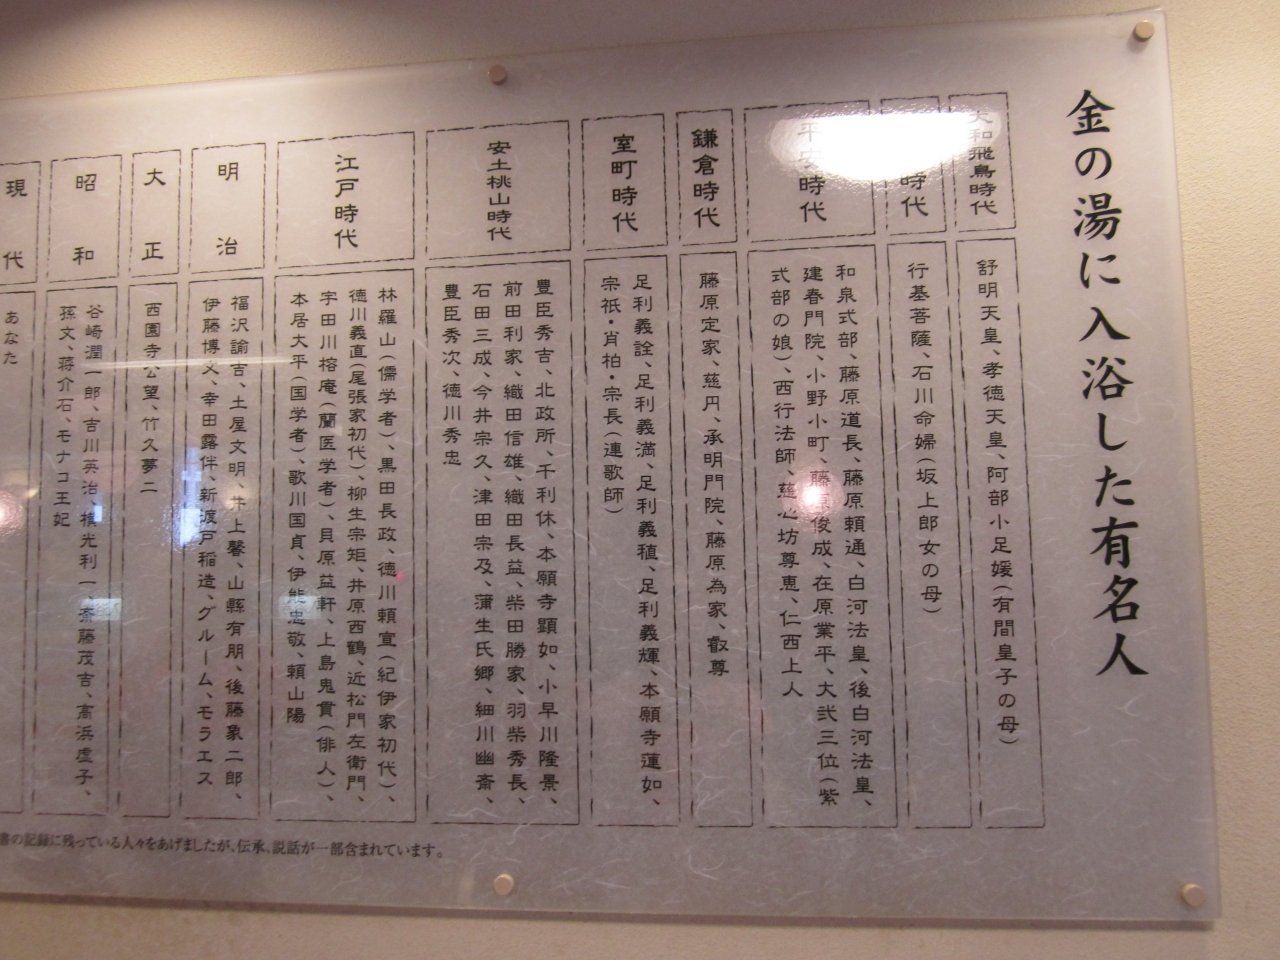 金の湯に入浴した有名人
大和飛鳥時代
舒明天皇、孝徳天皇、阿部小足媛(有間皇子の母)
時代
行基菩薩、石川命婦(坂上郎女の母)
平安時代
和泉式部、藤原道長、藤原頼通、白河法皇、後白河法皇、
建春門院、小野小町、藤原俊成、在原業平、大弐三位(紫
式部の娘)、西行法師、慈心坊尊恵、仁西上人
鎌倉時代
藤原定家、慈円、承明門院、藤原為家、叡尊
室町時代
足利義詮、足利義満、足利義稙、足利義輝、本願寺蓮如、
宗祇・肖柏・宗長(連歌師)
安土桃山時代
豊臣秀吉、北政所、千利休、本願寺顕如、小早川隆景、
前田利家、織田信雄、織田長益、柴田勝家、羽柴秀長、
石田三成、今井宗久、津田宗及、蒲生氏郷、細川幽斎、
豊臣秀次、徳川秀忠
江戸時代
林羅山(儒学者)、黒田長政、徳川頼宣(紀伊家初代)、
徳川義直(尾張家初代)、柳生宗矩、井原西鶴、近松門左衛門、
宇田川榕庵(蘭医学者)、貝原益軒、上島鬼貫(俳人)、
本居大平(国学者)、歌川国貞、伊能忠敬、頼山陽
明治
福沢諭吉、土屋文明、井上馨、山縣有朋、後藤象二郎、
伊藤博文、幸田露伴、新渡戸稲造、グルーム、モラエス
大正
西園寺公望、竹久夢二
昭和
谷崎潤一郎、吉川英治、横光利一、斎藤茂吉、高浜虚子、
孫文、蒋介石、モナコ王妃
現代
あなた
書の記録に残っている人々をあげましたが、伝承、説話が一部含まれています。